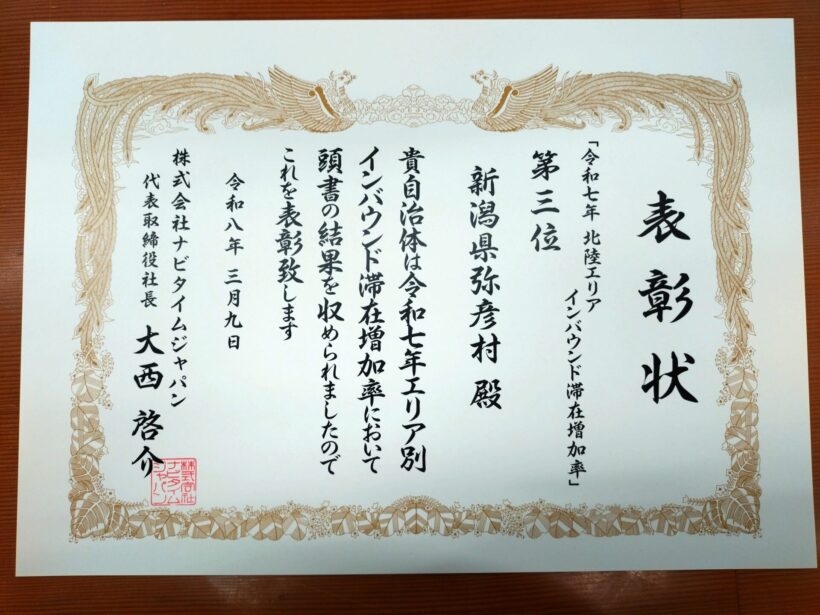 表彰状
「令和七年 北陸エリア
インバウンド滞在増加率」
第三位
新潟県弥彦村 殿
貴自治体は令和七年エリア別
インバウンド滞在増加率において
頭書の結果を収められましたので
これを表彰致します
令和八年 三月九日
株式会社ナビタイムジャパン
代表取締役社長 大西 啓介
株式会社
ナビタイム
ジャパン